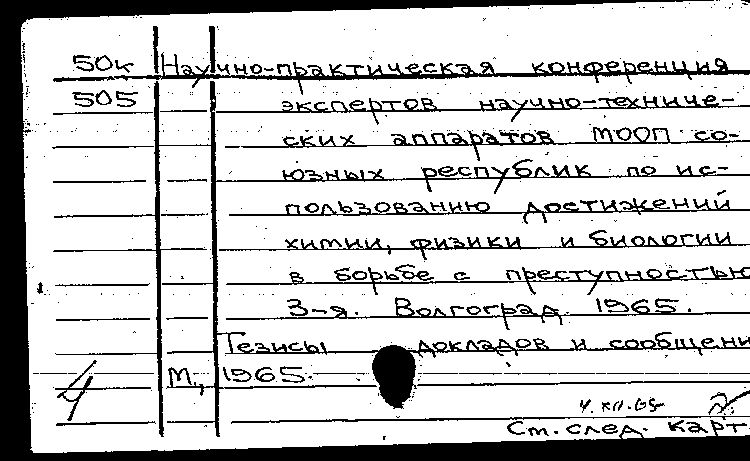 50к Научно-практическая конференция
505 экспертов научно-техниче-
ских аппаратов МООП со-
юзных республик по ис-
пользованию достижений
химии, физики и биологии
в борьбе с преступностью
3-я. Волгоград. 1965.
Тезисы докладов и сообщени
М., 1965.
4
4.XII.65
Ст. след. карт.